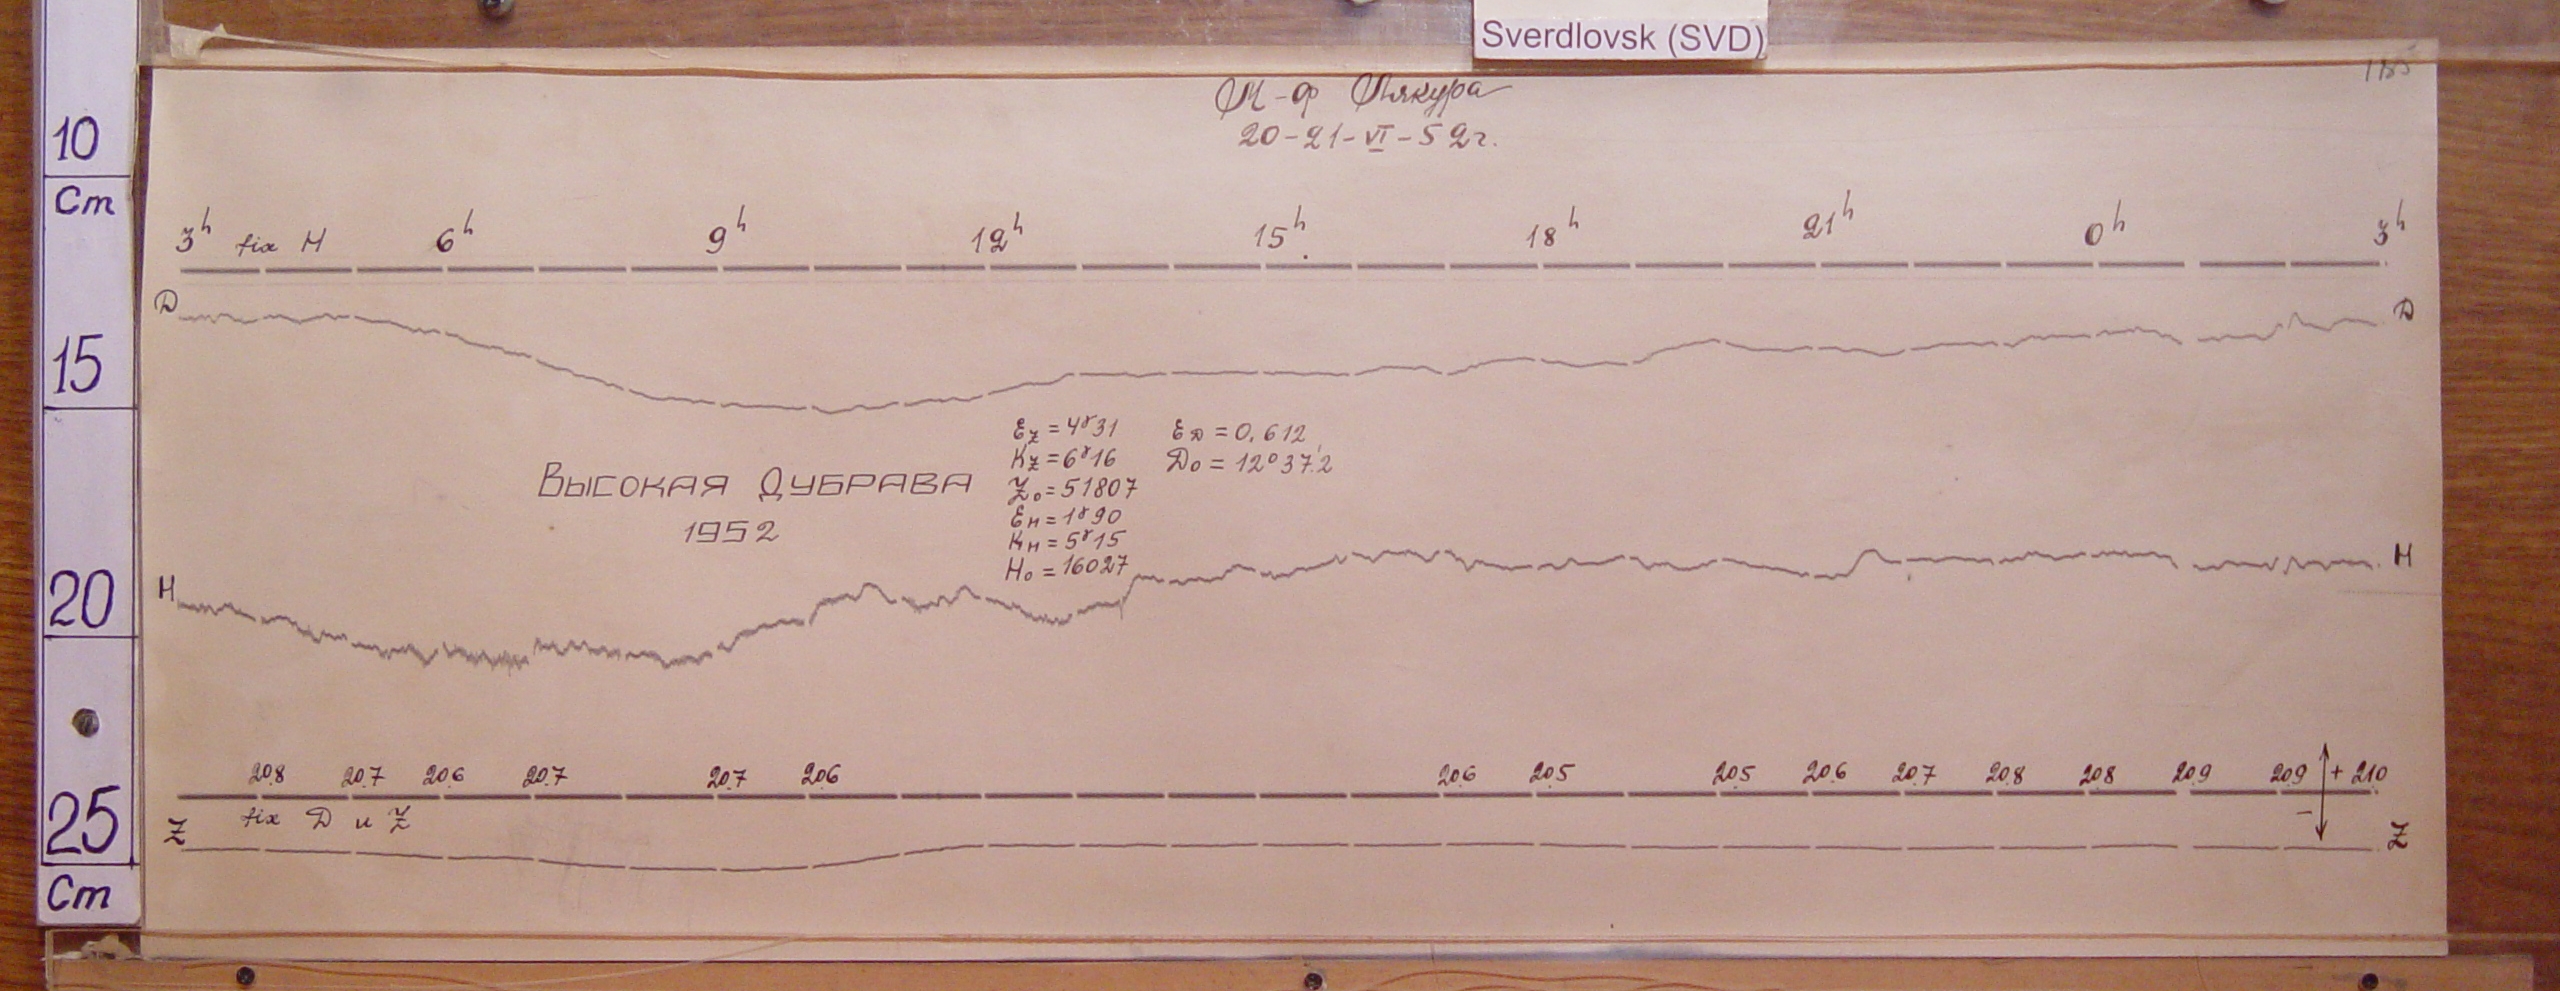 Sverdlovsk (SVD)
10
Cm
15
20
25
Cm
М-ф
20-21-VI-52г.
3h fix H 6h 9h 12h 15h 18h 21h 0h 3h
D D
Ez = 4γ31 ED = 0.612
Kz = 6γ16 D0 = 12°37'.2
Z0 = 51807
EH = 1γ90
KH = 5γ15
H0 = 16027
Высокая Дубрава
1952
H H
20.8 20.7 20.6 20.7 20.7 20.6 20.6 20.5 20.5 20.6 20.7 20.8 20.8 20.9 20.9 + 21.0
fix D и Z −
Z Z